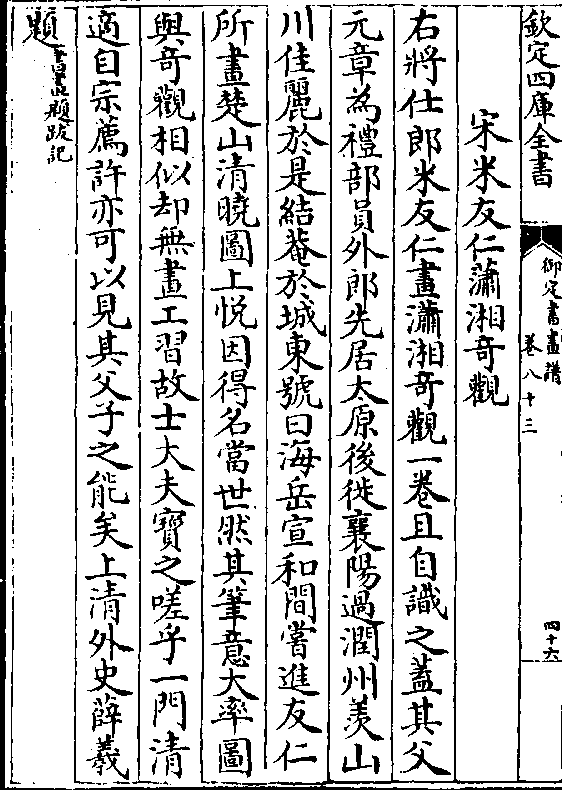 欽定四庫全書
御定書畫譜
卷八十三
四十六
宋米友仁瀟湘奇觀
右將仕郎米友仁畫瀟湘奇觀一卷且自識之蓋其父
元章為禮部員外郎先居太原後徙襄陽過潤州羨山
川佳麗於是結菴於城東號曰海岳宣和間嘗進友仁
所畫楚山清曉圖上悅因得名當世然其筆意大率圖
與奇觀相似却無畫工習故士大夫寶之嗟乎一門清
適自宗薦許亦可以見其父子之能矣上清外史薛羲
題書畫題跋記